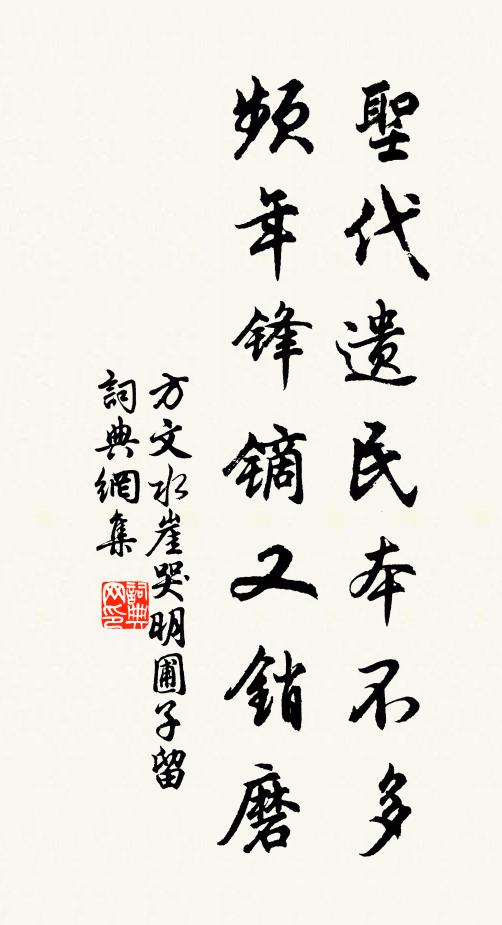 聖代遺民本不多
頻年鋒鏑又銷磨
方文水崖哭明圃子留
詞典網集
詞典网印